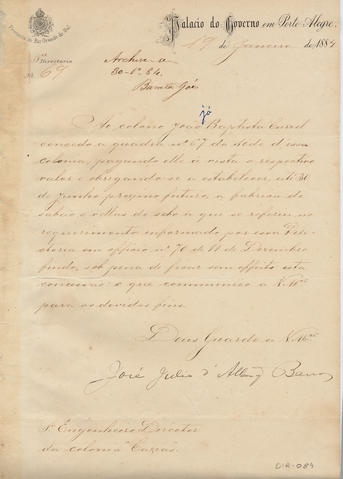 Palacio do Governo em Porto Alegre,
19 de Janeiro de 1884
Provincia do Rio Grande do Sul
Directoria
N. 67
Archive-se
30-1-84.
Barata Góis
já
Ao colono João Baptista Curel
concedo a quadra nº 67 da séde d'essa
colonia, pagando elle á vista o respectivo
valor e obrigando-se a estabelecer, até 30
de Junho proximo futuro, a fabrica de
sabão e vellas de sebo a que se refere no
requerimento informado por essa Dire-
ctoria em officio nº 76 de 11 de Dezembro
findo, sob pena de ficar sem effeito esta
concessão: o que communico a V. Mce
para os devidos fins.
Deus Guarde a V. Mce
José Julio d'Albuq Barros
Sr. Engenheiro Director
da colonia Caxias
DIR-084